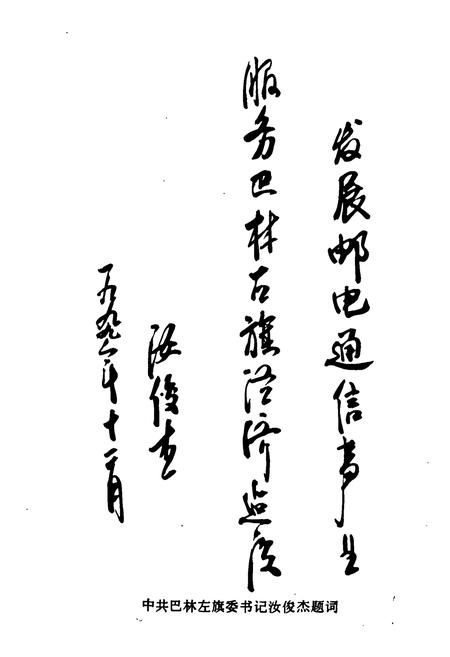 发展邮电通信事业
服务巴林左旗经济建设
汝俊杰
一九九年十一月
中共巴林左旗委书记汝俊杰题词